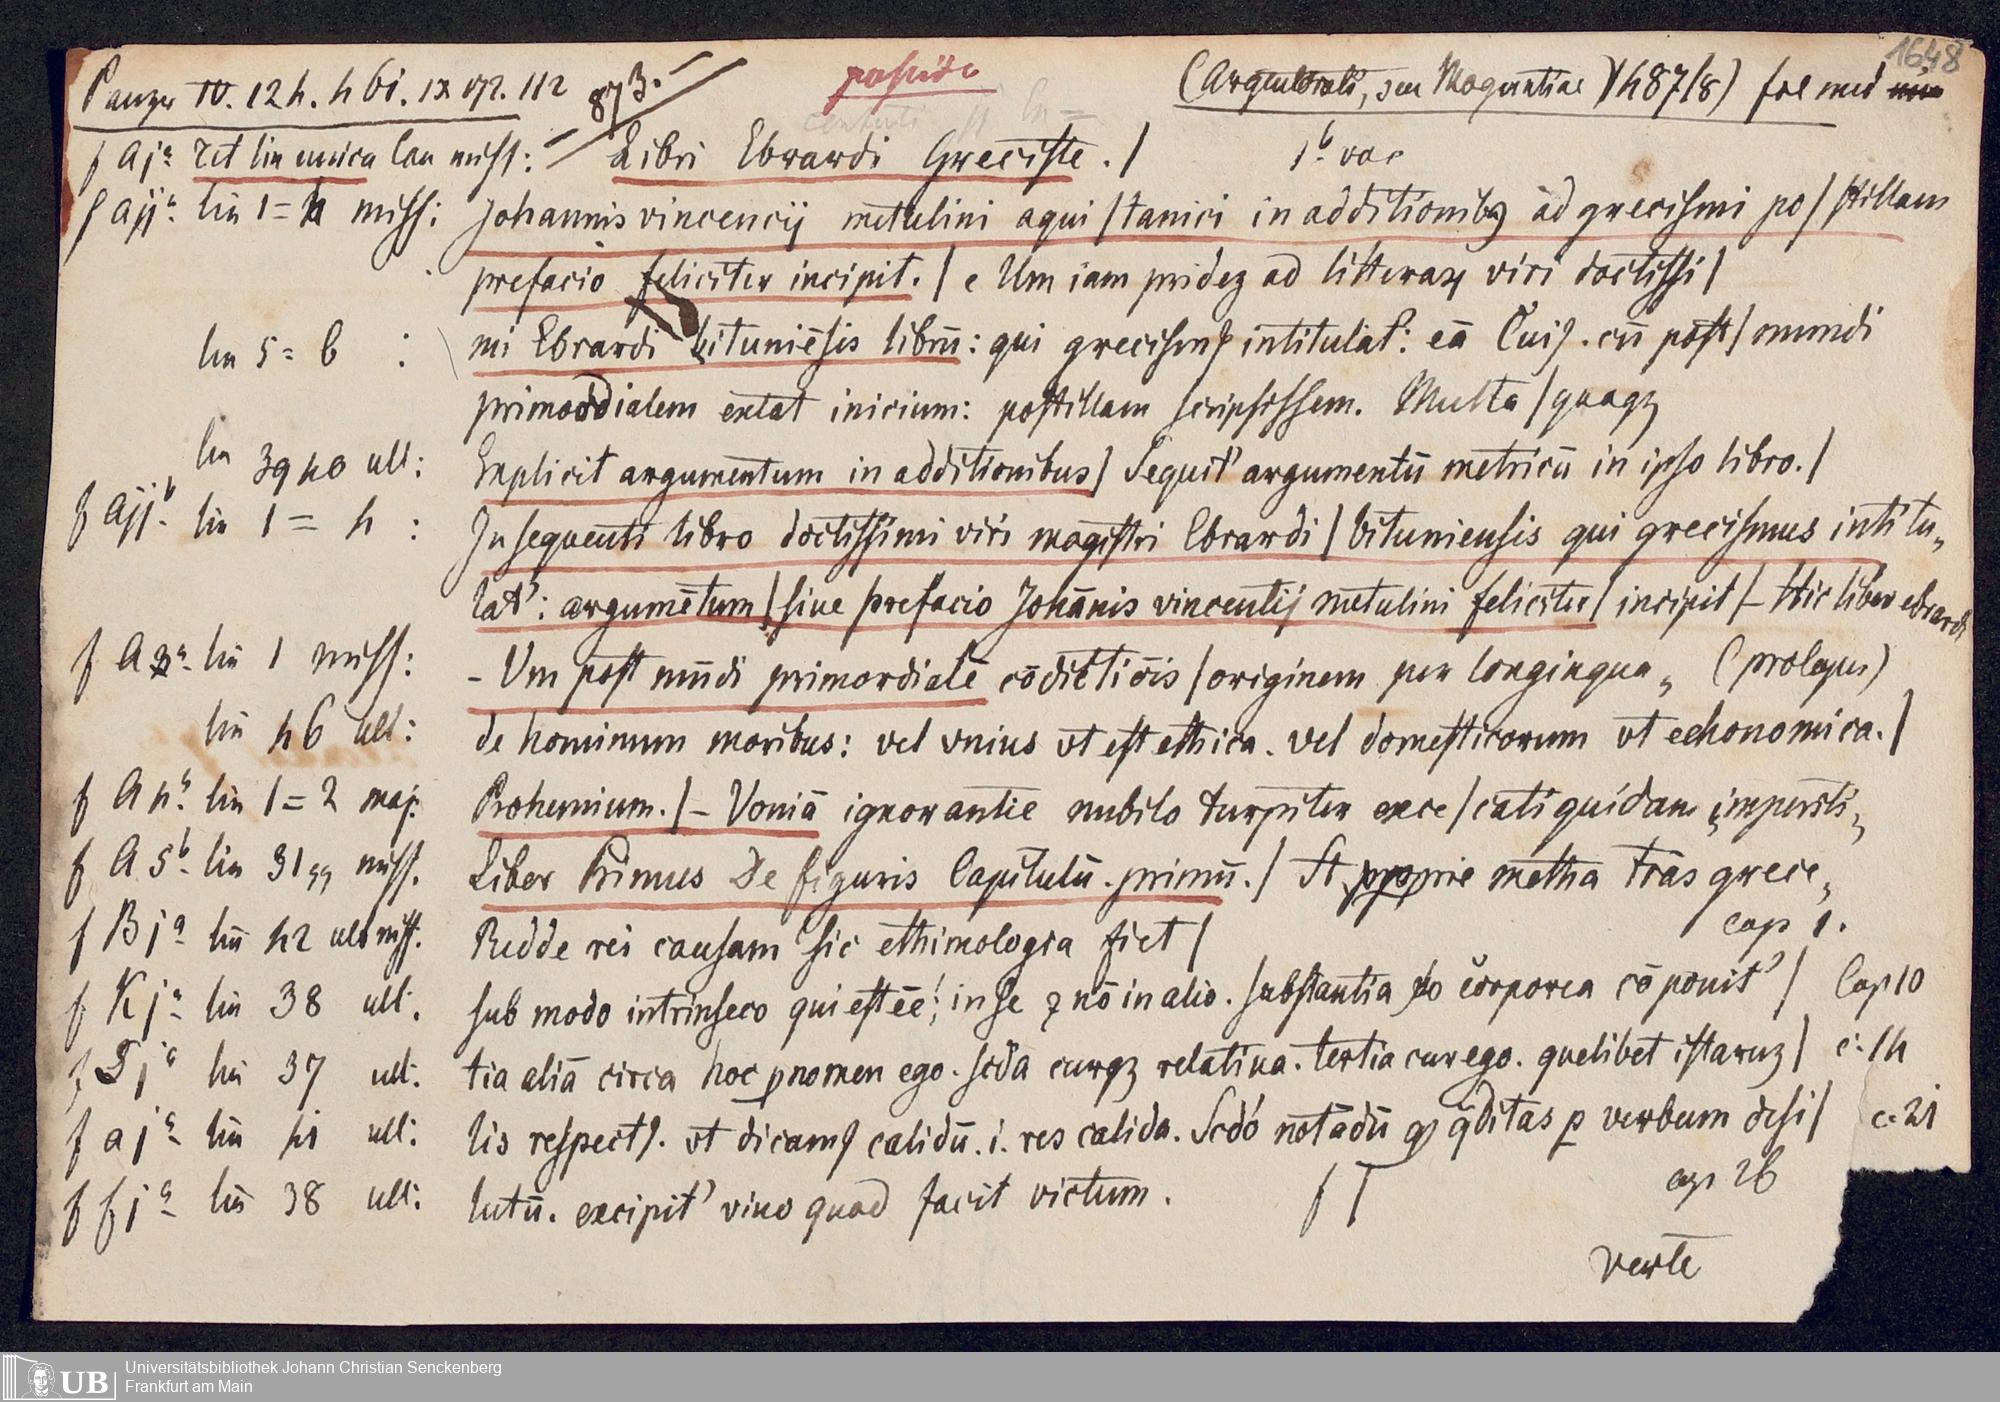 1648
Panzer IV. 124. 461. IX 172. 112 873. (Argentorati, seu Moguntiae 1487/8) fol med
f aja Tit lin unica lau miss: Libri Ebrardi Greciste. / 1b vac
f aija lin 1=4 miss: Johannis vincencij metulini aqui/tanici in additionibꝯ ad grecismi po/stillam
prefacio feliciter incipit. / c Um iam pridez ad litteraꝝ viri doctissi/
lin 5=6 : mi Ebrardi bituniēsis librū: qui grecismꝯ intitulat᾽: eā Cuiꝯ. cū post/mundi
primordialem extat inicium: postillam scripsissem. Multa/quaqꝫ
lin 39 40 ult: Explicit argumentum in additionibus/ Sequit᾽ argumentū metricū in ipso libro./
f aijb lin 1=4 : In sequenti libro doctissimi viri magistri Ebrardi/bituniensis qui grecismus intitu„
lat᾽: argumētum/siue prefacio Johānis vincentij metulini feliciter/incipit/– Hic liber ebrardi
f A3a lin 1 miss: – Um post mūdi primordialē cōdictiōis/originem per longinqua„ (prologus)
lin 46 ult: de hominum moribus: vel vnius vt est ethica. vel domesticorum vt echonomica./
f A4a lin 1=2 maj. Prohemium./– Voniā ignorantie nubilo turpiter exce/cati quidam imperiti„
f A5b lin 31 miss. Liber Primus De figuris Capitulū. primū./ St proprie metha trās grece„
cap 1.
f Bja lin 42 ult miss. Redde rei causam sic ethimologia fiet/
f Kja lin 38 ult. sub modo intrinseco qui est ēē: in se ꝫ nō in alio. substantia corporea cōponit᾽/ Cap 10
f Tja lin 37 ult. tia aliā circa hoc ꝓnomen ego. scd̄a curqꝫ relatiua. tertia cur ego. quelibet istaruꝫ/ c. 14
f aja lin 41 ult: lis respectꝯ. vt dicamꝯ calidū. i. res calida. Scdo notādū ꝙ q̄ditas ꝑ verbum desi/ c. 21
f fja lin 38 ult: lutū. excipit᾽ vino quod facit victum. cap 26
verte
UB
Universitätsbibliothek Johann Christian Senckenberg
Frankfurt am Main